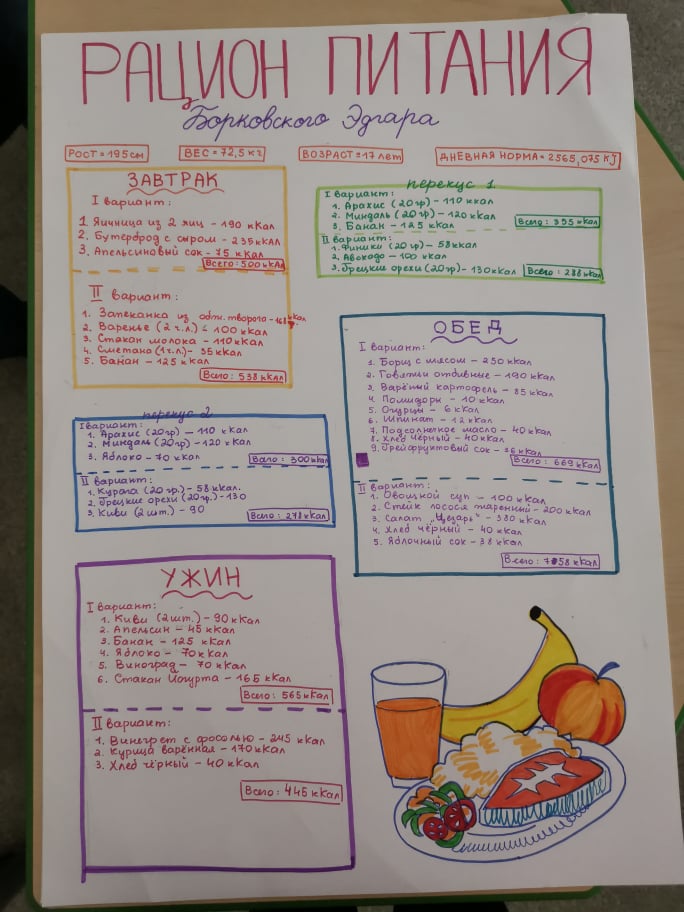 РАЦИОН ПИТАНИЯ
Борковского Эдгара
РОСТ = 195 см
ВЕС = 72,5 кг
ВОЗРАСТ = 17 лет
ДНЕВНАЯ НОРМА = 2565,075 KJ
ЗАВТРАК
I вариант:
1. Яичница из 2 яиц - 190 кКал
2. Бутерброд с сыром - 235 кКал
3. Апельсиновый сок - 75 кКал
Всего: 500 кКал
II вариант:
1. Запеканка из обж. творога - 168 кКал
2. Варенье (2 ч.л.) - 100 кКал
3. Стакан молока - 110 кКал
4. Сметана (1 ч.л.) - 35 кКал
5. Банан - 125 кКал
Всего: 538 кКал
перекус 1
I Вариант:
1. Арахис (20 гр) - 110 кКал
2. Миндаль (20 гр) - 120 кКал
3. Банан - 125 кКал
Всего: 355 кКал
II вариант:
1. Финики (20 гр) - 58 кКал
2. Авокадо - 100 кКал
3. Грецкие орехи (20 гр) - 130 кКал
Всего: 288 кКал
ОБЕД
I Вариант:
1. Борщ с мясом - 250 кКал
2. Говяжьи отбивные - 190 кКал
3. Варёный картофель - 85 кКал
4. Помидоры - 10 кКал
5. Огурцы - 6 кКал
6. Шпинат - 12 кКал
7. Подсолнечное масло - 40 кКал
8. Хлеб чёрный - 40 кКал
9. Грейфруктовый сок - 36 кКал
Всего: 669 кКал
II Вариант:
1. Овощной суп - 100 кКал
2. Стейк лосося жаренный - 200 кКал
3. Салат "Цезарь" - 380 кКал
4. Хлеб чёрный - 40 кКал
5. Яблочный сок - 38 кКал
Всего: 758 кКал
перекус 2
I Вариант:
1. Арахис (20 гр) - 110 кКал
2. Миндаль (20 гр) - 120 кКал
3. Яблоко - 70 кКал
Всего: 300 кКал
II вариант:
1. Курага (20 гр.) - 58 кКал.
2. Грецкие орехи (20 гр.) - 130
3. Киви (2 шт.) - 90
Всего: 278 кКал
УЖИН
I Вариант:
1. Киви (2 шт.) - 90 кКал
2. Апельсин - 45 кКал
3. Банан - 125 кКал
4. Яблоко - 70 кКал
5. Виноград - 70 кКал
6. Стакан Йогурта - 165 кКал
Всего: 565 кКал
II Вариант:
1. Винегрет с фасолью - 245 кКал
2. Курица варённая - 170 кКал
3. Хлеб чёрный - 40 кКал
Всего: 445 кКал